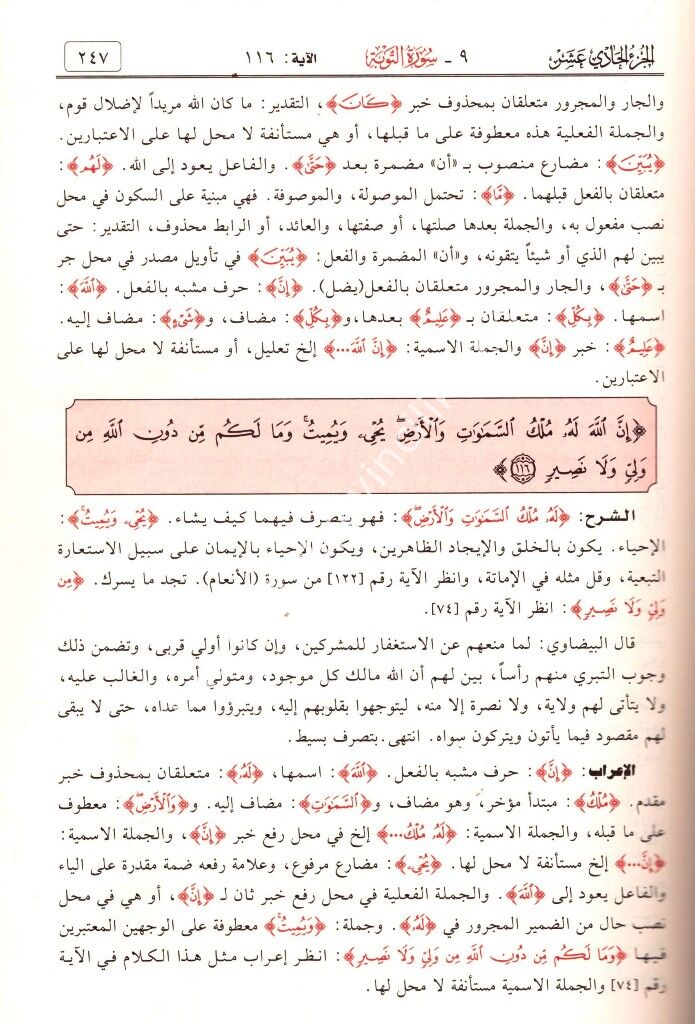 الجزء الحادي عشر ٩ - سورة التوبة الآية: ١١٦ ٢٤٧
والجار والمجرور متعلقان بمحذوف خبر ﴿كَانَ﴾، التقدير: ما كان الله مريداً لإضلال قوم،
والجملة الفعلية هذه معطوفة على ما قبلها، أو هي مستأنفة لا محل لها على الاعتبارين.
﴿يُبَيِّنَ﴾: مضارع منصوب بـ «أن» مضمرة بعد ﴿حَتَّىٰ﴾. والفاعل يعود إلى الله. ﴿لَهُم﴾:
متعلقان بالفعل قبلهما. ﴿مَّا﴾: تحتمل الموصولة، والموصوفة. فهي مبنية على السكون في محل
نصب مفعول به، والجملة بعدها صلتها، أو صفتها، والعائد، أو الرابط محذوف، التقدير: حتى
يبين لهم الذي أو شيئاً يتقونه، و«أن» المضمرة والفعل: ﴿يُبَيِّنَ﴾ في تأويل مصدر في محل جر
بـ ﴿حَتَّىٰ﴾، والجار والمجرور متعلقان بالفعل(يضل). ﴿إِنَّ﴾: حرف مشبه بالفعل. ﴿اللَّهَ﴾:
اسمها. ﴿بِكُلِّ﴾: متعلقان بـ ﴿عَلِيمٌ﴾ بعدها،و﴿بِكُلِّ﴾: مضاف، و﴿شَيْءٍ﴾: مضاف إليه.
﴿عَلِيمٌ﴾: خبر ﴿إِنَّ﴾ والجملة الاسمية: ﴿إِنَّ اللَّهَ...﴾ إلخ تعليل، أو مستأنفة لا محل لها على
الاعتبارين.
﴿إِنَّ اللَّهَ لَهُ مُلْكُ السَّمَٰوَٰتِ وَالْأَرْضِ ۖ يُحْيِۦ وَيُمِيتُ ۚ وَمَا لَكُم مِّن دُونِ اللَّهِ مِن
وَلِيٍّ وَلَا نَصِيرٍ ١١٦﴾
الشرح: ﴿لَهُ مُلْكُ السَّمَٰوَٰتِ وَالْأَرْضِ ۖ﴾: فهو يتصرف فيهما كيف يشاء. ﴿يُحْيِۦ وَيُمِيتُ ۚ﴾:
الإحياء. يكون بالخلق والإيجاد الظاهرين، ويكون الإحياء بالإيمان على سبيل الاستعارة
التبعية، وقل مثله في الإماتة، وانظر الآية رقم [١٢٢] من سورة (الأنعام). تجد ما يسرك. ﴿مِن
وَلِيٍّ وَلَا نَصِيرٍ﴾: انظر الآية رقم [٧٤].
قال البيضاوي: لما منعهم عن الاستغفار للمشركين، وإن كانوا أولي قربى، وتضمن ذلك
وجوب التبري منهم رأساً، بين لهم أن الله مالك كل موجود، ومتولي أمره، والغالب عليه،
ولا يتأتى لهم ولاية، ولا نصرة إلا منه، ليتوجهوا بقلوبهم إليه، ويتبرؤوا مما عداه، حتى لا يبقى
لهم مقصود فيما يأتون ويتركون سواه. انتهى.بتصرف بسيط.
الإعراب: ﴿إِنَّ﴾: حرف مشبه بالفعل. ﴿اللَّهَ﴾: اسمها، ﴿لَهُ﴾: متعلقان بمحذوف خبر
مقدم. ﴿مُلْكُ﴾: مبتدأ مؤخر، وهو مضاف، و﴿السَّمَٰوَٰتِ﴾: مضاف إليه. و﴿وَالْأَرْضِ ۖ﴾: معطوف
على ما قبله، والجملة الاسمية: ﴿لَهُ مُلْكُ...﴾ إلخ في محل رفع خبر ﴿إِنَّ﴾، والجملة الاسمية:
﴿إِنَّ...﴾ إلخ مستأنفة لا محل لها. ﴿يُحْيِۦ﴾: مضارع مرفوع، وعلامة رفعه ضمة مقدرة على الياء
والفاعل يعود إلى ﴿اللَّهَ﴾. والجملة الفعلية في محل رفع خبر ثان لـ ﴿إِنَّ﴾، أو هي في محل
نصب حال من الضمير المجرور في ﴿لَهُ﴾. وجملة: ﴿وَيُمِيتُ ۚ﴾ معطوفة على الوجهين المعتبرين
فيها ﴿وَمَا لَكُم مِّن دُونِ اللَّهِ مِن وَلِيٍّ وَلَا نَصِيرٍ﴾: انظر إعراب مثل هذا الكلام في الآية
رقم [٧٤] والجملة الاسمية مستأنفة لا محل لها.